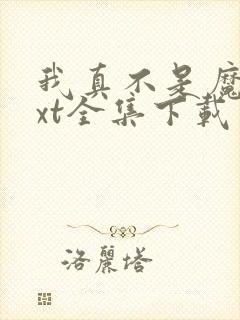 我真不是魔
xt全集下载
洛麗塔